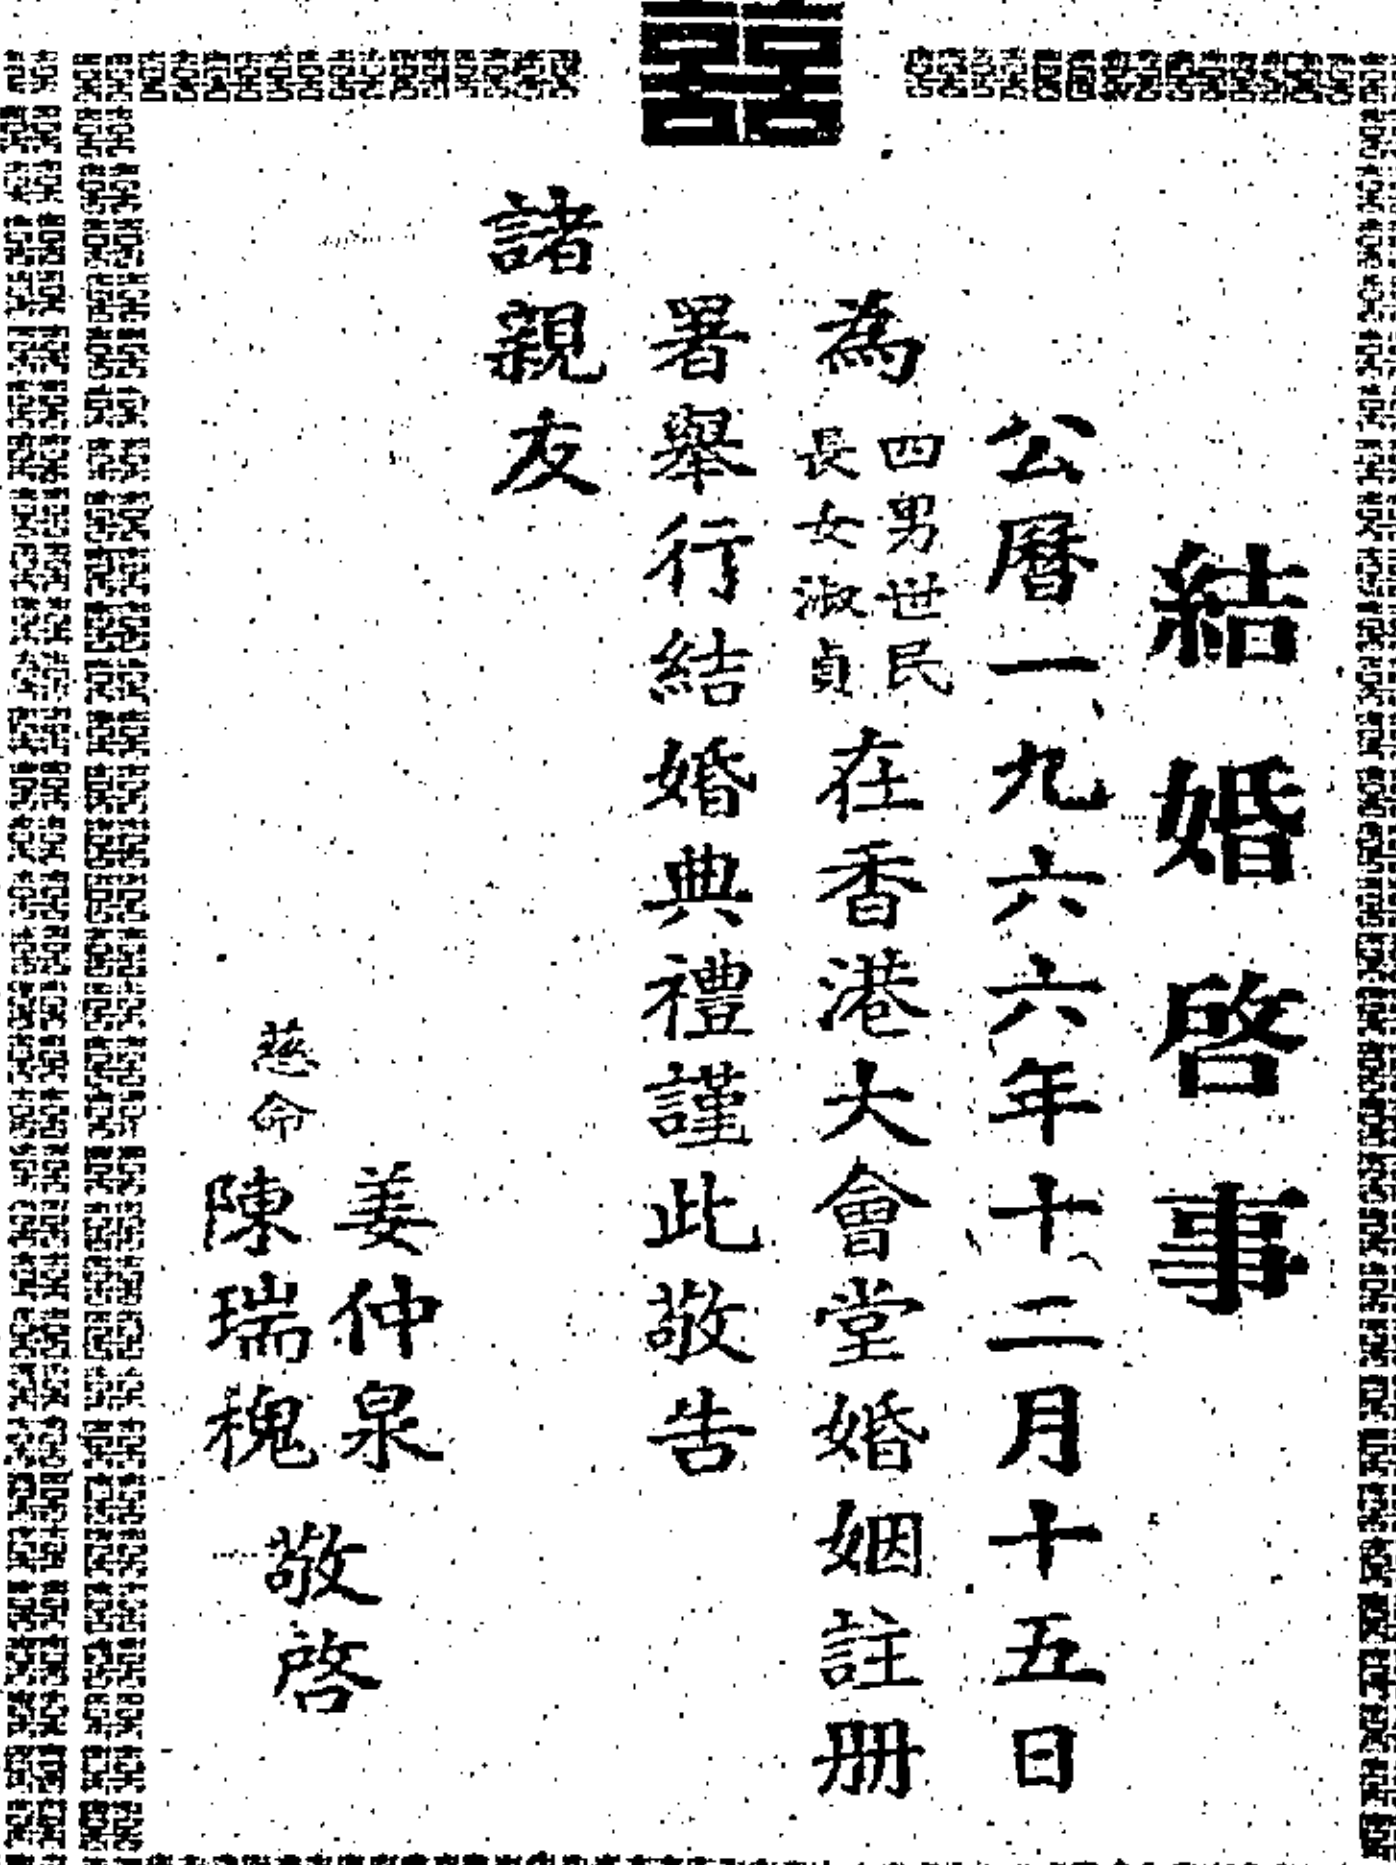 囍
結婚啓事
公曆一九六六年十二月十五日
為
四男世民
長女淑貞
在香港大會堂婚姻註册
署舉行結婚典禮謹此敬告
諸親友
姜仲泉
慈命
陳瑞槐
敬啓